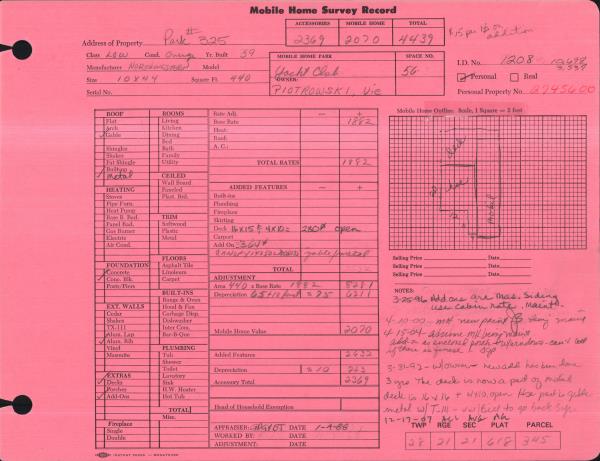 Mobile Home Survey Record
ACCESSORIES MOBILE HOME TOTAL
2369 2070 4439
Address of Property Park # 325
Class LOW Cond. Average Yr. Built 59
Manufacturer Model
Size 10x44 Square Ft. 440
Serial No.
MOBILE HOME PARK SPACE NO.
Yacht Club 56
OWNER:
PIOTROWSKI, Vic
I.D. No. 1208
Personal Real
Personal Property No. 2745600
Mobile Home Outline Scale, 1 Square = 2 feet
ROOF
Flat
Arch
Gable
Shingles
Shakes
Fat Shingle
Built-up
Metal
HEATING
Stoves
Pipe Furn.
Heat Pump
Base B. Rad.
Panel Rad.
Gas Burner
Electric
Air Cond.
FOUNDATION
Concrete
Conc. Blk.
Posts/Piers
EXT. WALLS
Cedar
Shakes
TX-111
Alum. Lap
Alum. Rib
Vinyl
Masonite
EXTRAS
Decks
Porches
Add-Ons
Fireplace
Single
Double
ROOMS
Living
Kitchen
Dining
Bed
Bath
Family
Utility
CEILED
Wall Board
Paneled
Plast. Brd.
TRIM
Softwood
Plastic
Metal
FLOORS
Asphalt Tile
Linoleum
Carpet
BUILT-INS
Range & Oven
Hood & Fan
Garbage Disp.
Dishwasher
Inter Com.
Bar-B-Que
PLUMBING
Tub
Shower
Toilet
Lavatory
Sink
H.W. Heater
Hot Tub
TOTAL
Misc.
Rate Adj. − +
Base Rate 1882
Heat:
Roof:
A. C.:
TOTAL RATES 1882
ADDED FEATURES − +
Built-ins
Plumbing
Fireplace
Skirting
Deck 16x15 & 4x10 = 280# open
Carport
Add On 364#
TOTAL
ADJUSTMENT
Area 440 x Base Rate 1882 8281
Depreciation 6211
Mobile Home Value 2070
Added Features 2632
Depreciation 263
Accessory Total 2369
Head of Household Exemption
APPRAISER: DATE 1-4-88
WORKED BY: DATE
ADJUSTMENT: DATE
deck
mobil
12
Selling Price Date
Selling Price Date
Selling Price Date
NOTES:
3-25-96 Add ons are Mas. Siding
use cabin rate. Maint.
4-10-00 - MH new paint being maint
4-15-04 - assume MH being maint
add on is enclosed porch w/windows - can't tell
3-31-92 - w/owner - new add has been done
3 yrs The deck is now a part of metal
deck is 16 x 16 + 4x10 open
metal w/ T-111 - will need to go back
12-17-07
TWP RGE SEC PLAT PARCEL
28 21 21 618 345